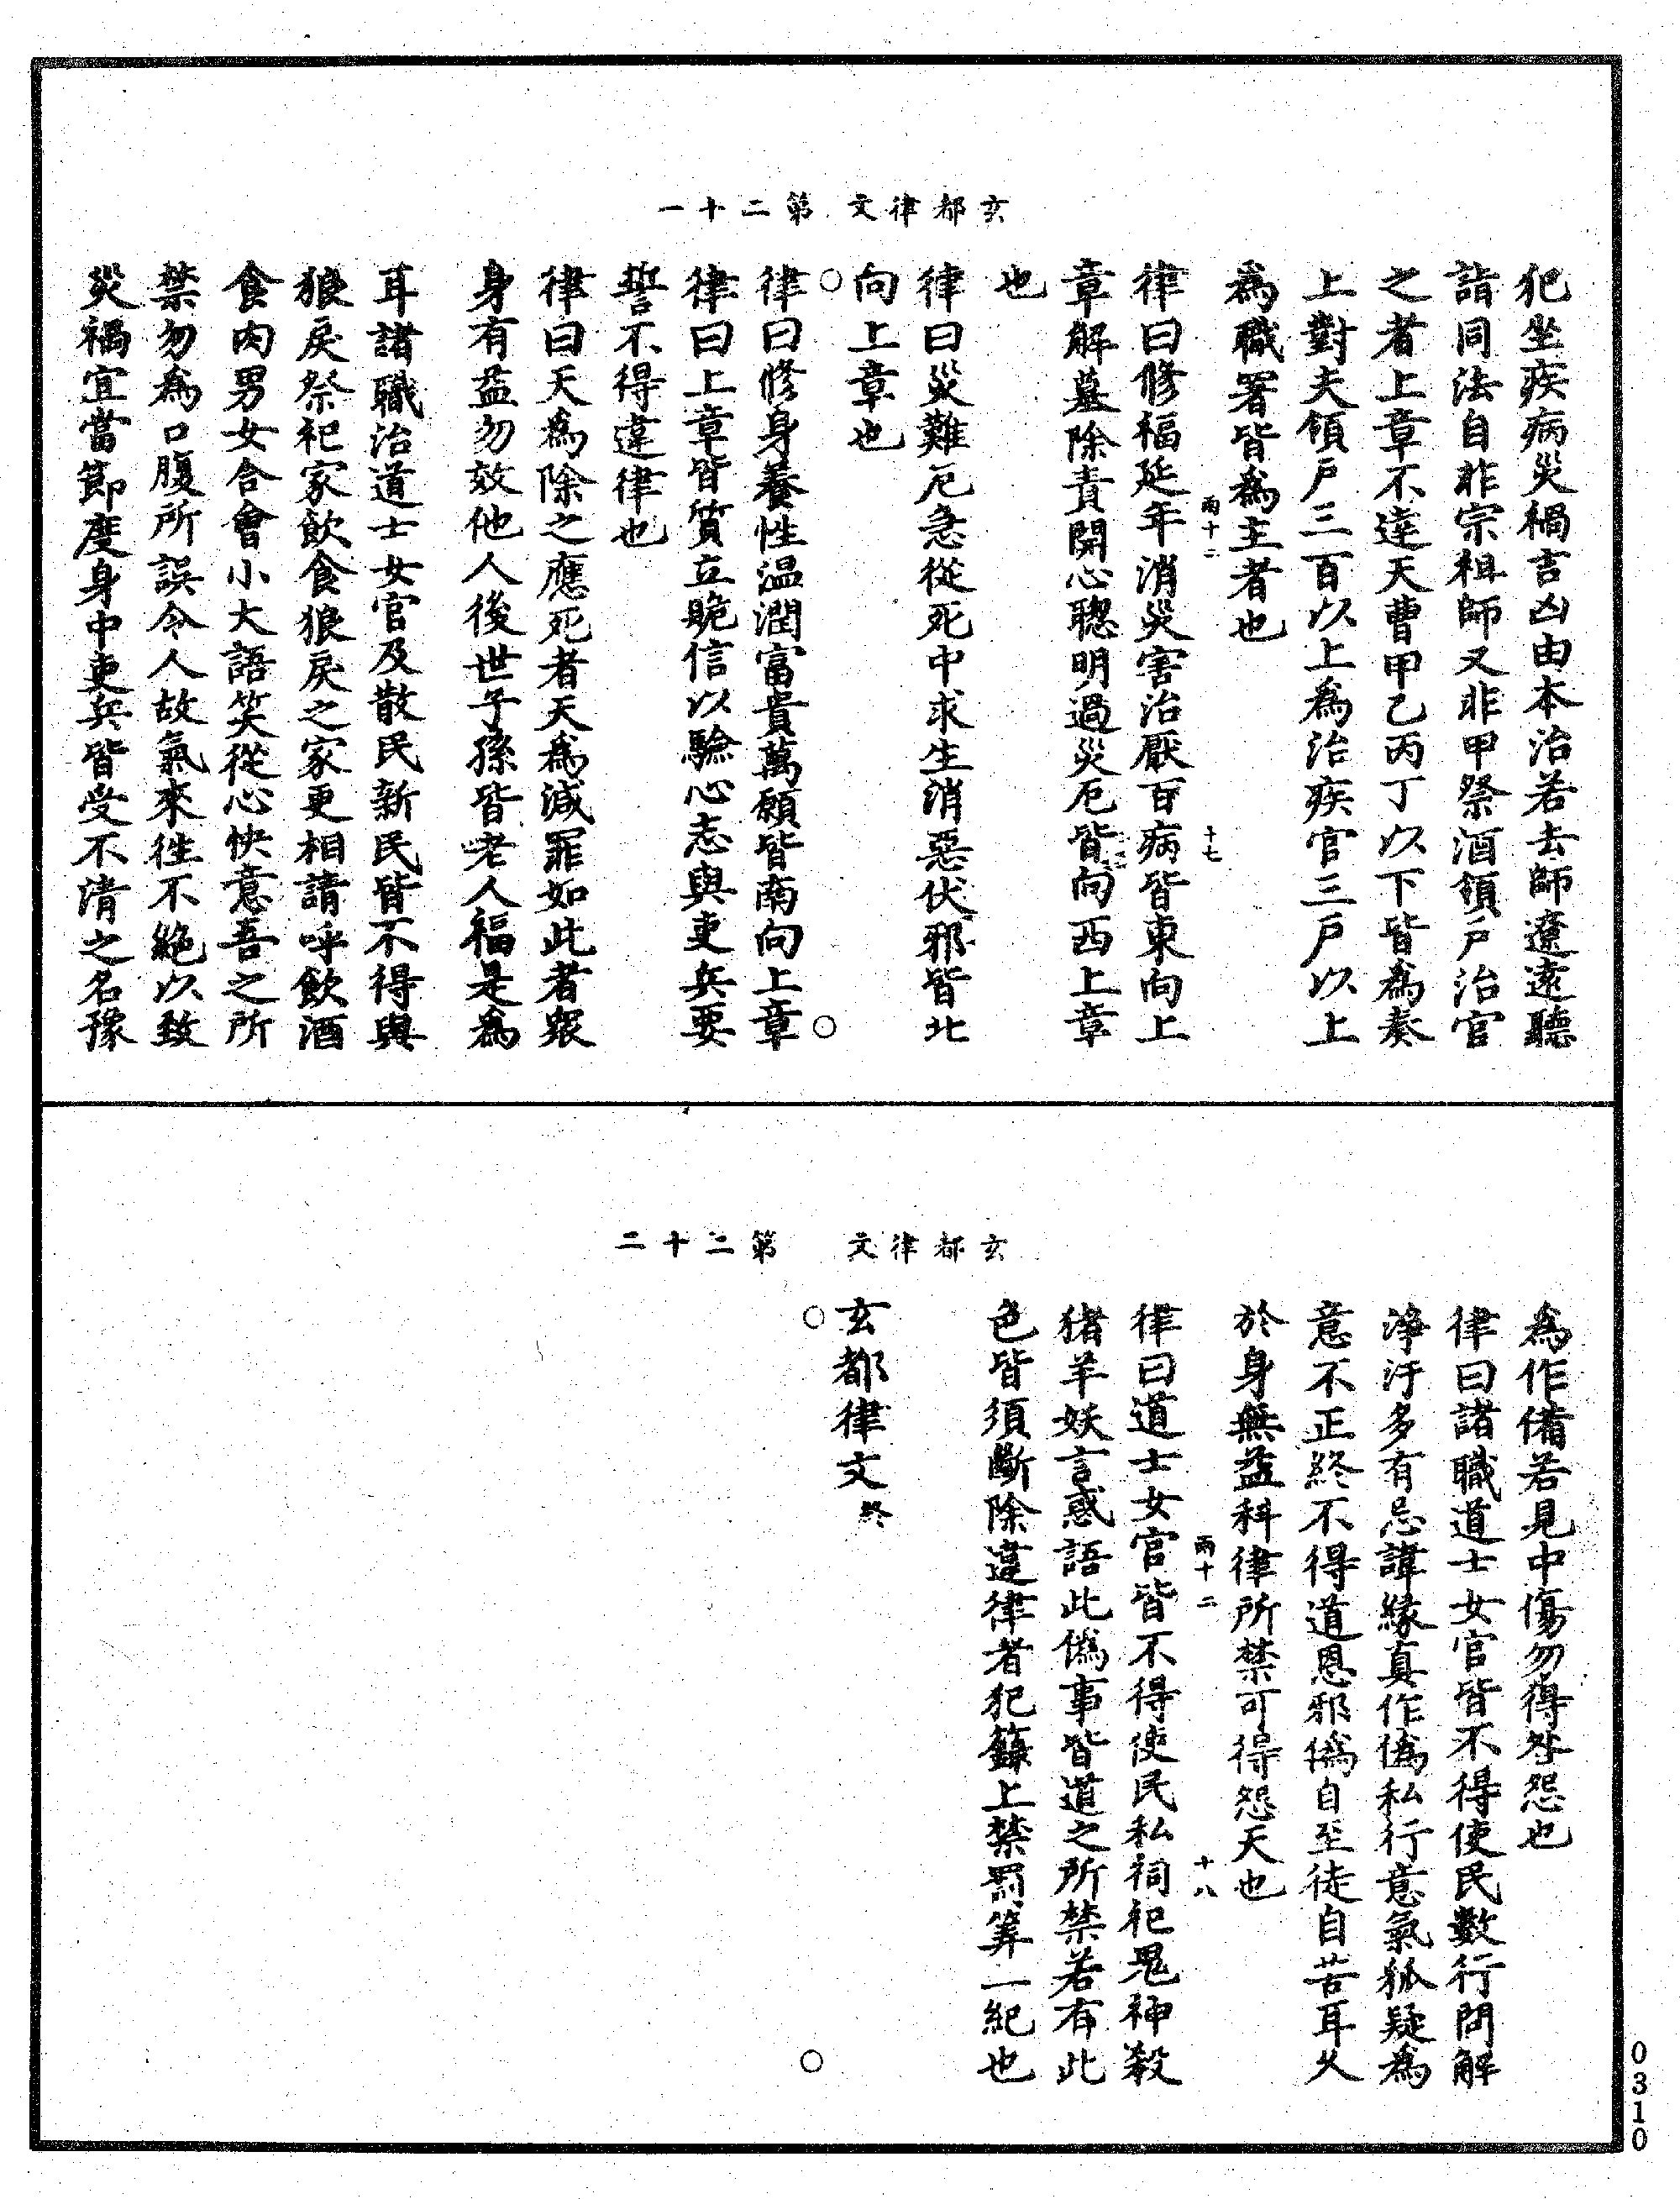 玄都律文 第二十一
犯坐疾病災禍吉凶由本治若去師遼遠聽
詣同法自非宗祖師又非甲祭酒領戶治官
之者上章不達天曹甲乙丙丁以下皆為奏
上對夫領戶三百以上為治疾官三戶以上
為職署皆為主者也
雨十二 十七
律曰修福延年消災害治厭百病皆東向上
章解墓除責開心聰明過災厄皆向西上章
也
律曰災難厄急從死中求生消惡伏邪皆北
向上章也
律曰修身養性温潤富貴萬願皆南向上章
律曰上章皆質立跪信以驗心志與吏兵要
誓不得違律也
律曰天為除之應死者天為減罪如此者眾
身有益勿效他人後世子孫皆老人福是為
耳諸職治道士女官及散民新民皆不得與
狼戾祭祀家飲食狼戾之家更相請呼飲酒
食肉男女合會小大語笑從心快意吾之所
禁勿為口腹所誤令人故氣來往不絕以致
災禍宜當節度身中吏兵皆受不清之名豫
玄都律文 第二十二
為作備若見中傷勿得咎怨也
律曰諸職道士女官皆不得使民數行問解
淨汙多有忌諱緣真作偽私行意氣狐疑為
意不正終不得道恩邪偽自至徒自苦耳久
於身無益科律所禁可得怨天也
雨十二 十八
律曰道士女官皆不得使民私祠祀鬼神殺
猪羊妖言惑語此偽事皆道之所禁若有此
色皆須斷除違律者犯籙上禁罰筭一紀也
玄都律文終
0310